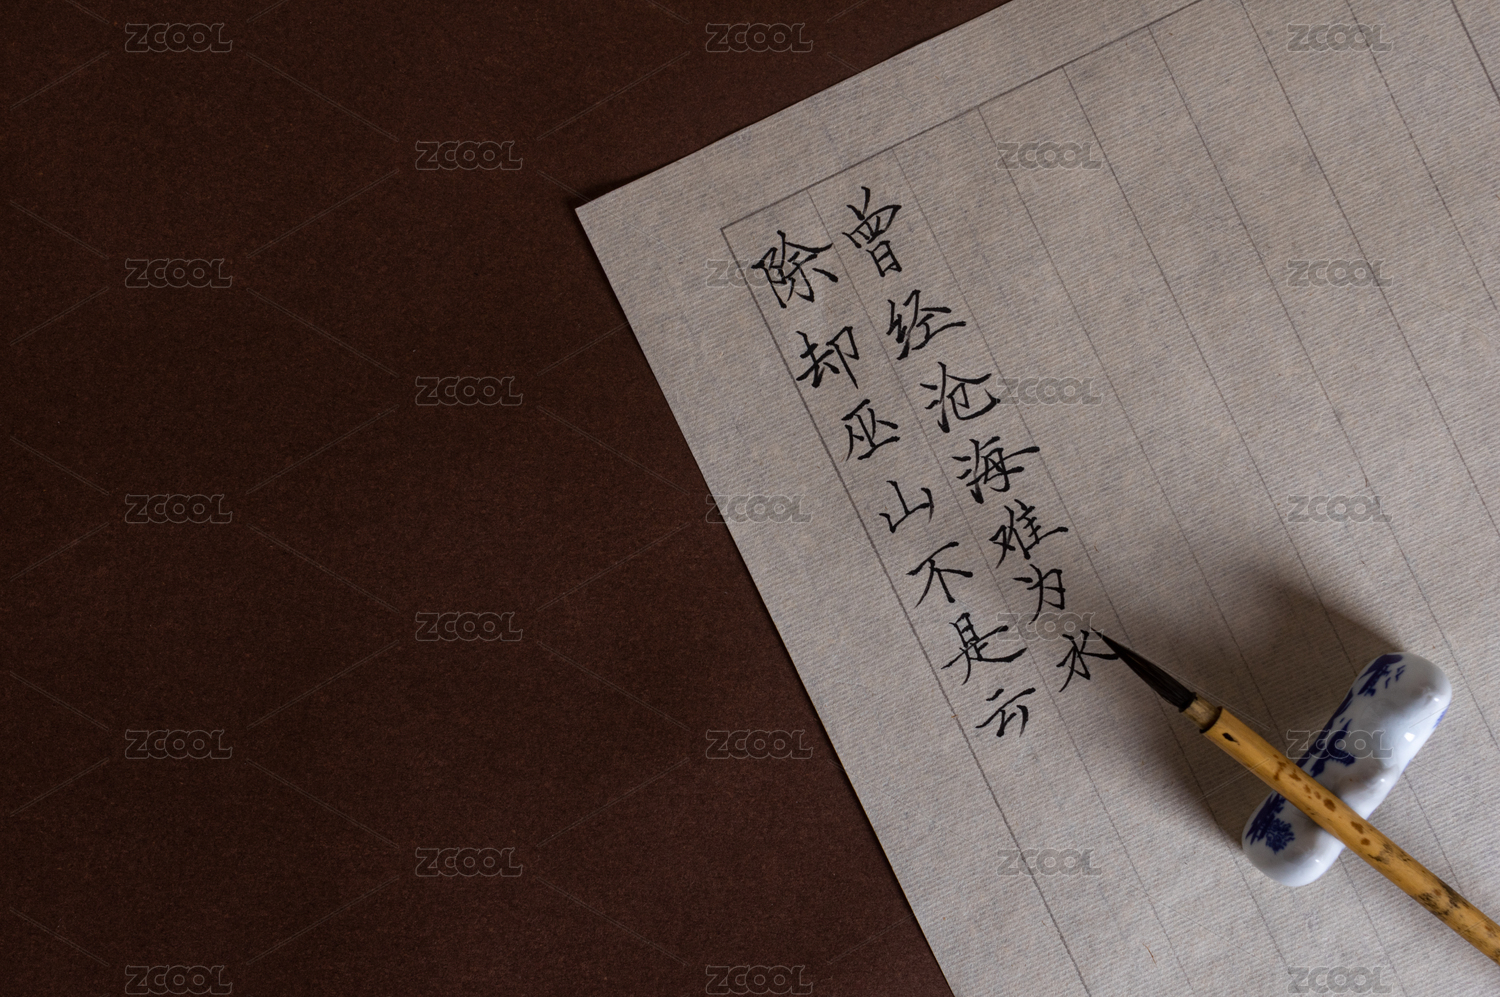 曾经沧海难为水
除却巫山不是云
ZCOOL